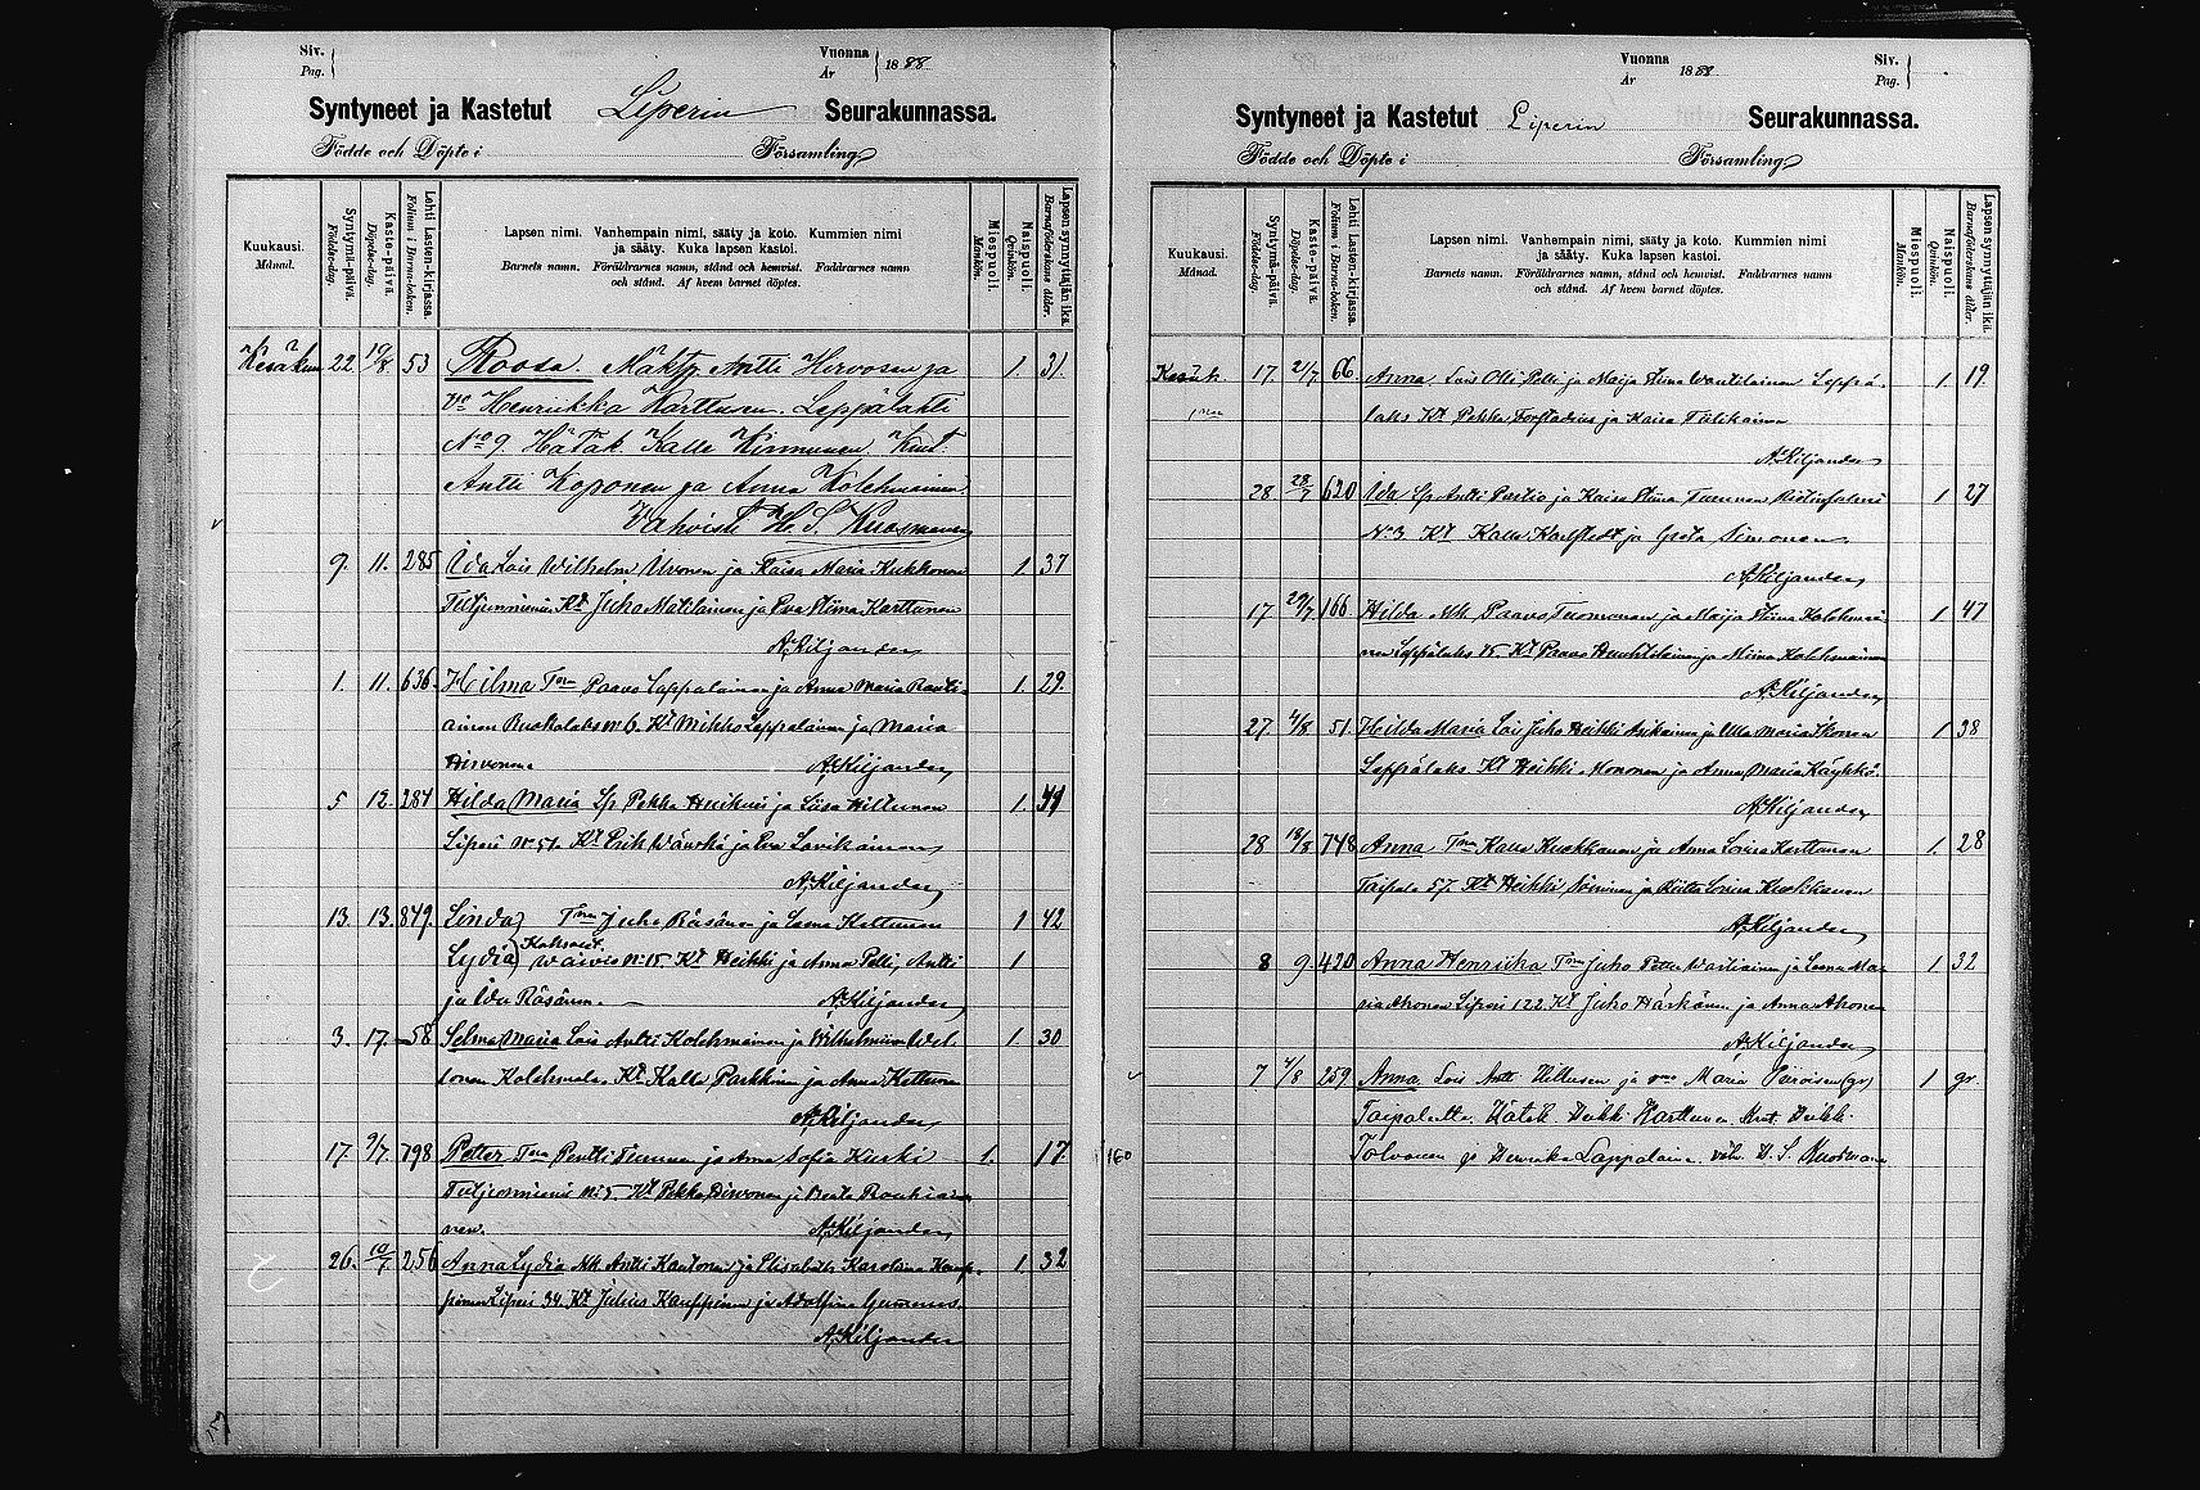 Siv.
Pag.
Vuonna
År
1888
Syntyneet ja Kastetut Liperin Seurakunnassa.
Födde och Döpte i Församling
Kuukausi.
Månad.
Syntymä-päivä.
Födelse-dag.
Kaste-päivä.
Döpelse-dag.
Lehti Lasten-kirjassa.
Folium i Barna-boken.
Lapsen nimi. Vanhempain nimi, sääty ja koto. Kummien nimi
ja sääty. Kuka lapsen kastoi.
Barnets namn. Föräldrarnes namn, stånd och hemvist. Faddrarnes namn
och stånd. Af hvem barnet döptes.
Miespuoli.
Mankön.
Naispuoli.
Qvinkön.
Lapsen synnyttäjän ikä.
Barnaföderskans ålder.
Kesäkuu 22 19/8 53 Roosa. Mäktp. Antti Hirvosen ja 1. 31.
Vo Henriikka Karttusen. Leppälahti
No 9. Hätäk. Kalle Kinnunen. Kmt.
Antti Koponen ja Anna Kolehmainen.
Vahvisti H. S. Kuosmanen
9. 11. 285 Ida Lois Wilhelm Urvonen ja Kaisa Maria Kukkonen 1. 37
Tutjunniemi Kt Juho Matilainen ja Eva Stiina Karttunen
A. Kiljander
1. 11. 636. Hilma Tnn Paavo Lappalainen ja Anna Maria Rauti- 1. 29.
ainen Ruokolaks No 6. Kt Mikko Lappalainen ja Maria
Hirvonen. A. Kiljander
5 12. 284 Hilda Maria Lp Pekka ja Liisa Hiltunen 1. 44
Liperi No 51. Kt Erik ja Eva Lavikainen
A. Kiljander
13. 13. 849. Linda Tnn Juho Räsänen ja Leena Kettunen 1 42
Lydia Kaksoset No 15. Kt Heikki ja Anna Pelli, Antti 1
ja Ida Räsänen. A. Kiljander
3. 17. 58 Selma Maria Lois Antti Kolehmainen ja Wilhelmiina 1. 30
Kolehmala. Kt Kalle Parkkinen ja Anna Kettunen
A. Kiljander
17. 9/7. 798 Petter Tnn Pentti Turunen ja Anna Sofia Kuski 1. 17.
No 5. Kt Pekka Hirvonen ja Beata Rautiai-
nen. A. Kiljander
26. 10/7. 256 Anna Lydia Mk Antti Kautonen ja Elisabeth Karolina Kaup- 1. 32
pinen Liperi 34. Kt Julius Kauppinen ja Adolfina Gummerus.
A. Kiljander
Vuonna
År
1888
Siv.
Pag.
Syntyneet ja Kastetut Liperin Seurakunnassa.
Födde och Döpte i Församling
Kuukausi.
Månad.
Syntymä-päivä.
Födelse-dag.
Kaste-päivä.
Döpelse-dag.
Lehti Lasten-kirjassa.
Folium i Barna-boken.
Lapsen nimi. Vanhempain nimi, sääty ja koto. Kummien nimi
ja sääty. Kuka lapsen kastoi.
Barnets namn. Föräldrarnes namn, stånd och hemvist. Faddrarnes namn
och stånd. Af hvem barnet döptes.
Miespuoli.
Mankön.
Naispuoli.
Qvinkön.
Lapsen synnyttäjän ikä.
Barnaföderskans ålder.
Kesäk. 17. 2/7 66. Anna. Lois Olli Pelli ja Maija Stiina Wentilainen Leppä- 1. 19.
laks Kt Pekka Forstadius ja Kaisa Tiilikainen
A. Kiljander
28 28/7 620 Ida Lp Antti ja Kaisa Stiina Turunen 1 27
No 3 Kt Kalle Karlstedt ja Greta Simonen.
A. Kiljander
17. 29/7. 166. Hilda Mk Paavo Tuomonen ja Maija Stiina Kolehmai- 1 47
nen Leppälaks 15. Kt Paavo Huuhtilainen ja Miina Kolehmainen
A. Kiljander
27. 4/8 51. Hilda Maria Lois Juho Heikki Asikainen ja Ulla Maria Ikonen 1 38
Leppälaks Kt Heikki Mononen ja Anna Maria Käyhkö.
A. Kiljander
28 18/8 748 Anna Tnn Kalle Kuokkanen ja Anna Lovisa Karttunen 1. 28
Taipale 57. Kt Heikki Söninen ja Riitta Lovisa Kuokkanen
A. Kiljander
8 9. 420 Anna Henrika Tnn Juho Petter Wartiainen ja Leena Ma- 1. 32
ria Ahonen Liperi 122. Kt Juho Härkönen ja Anna Ahonen
A. Kiljander
7 4/8 259 Anna Lois Antti Hiltusen ja vmo Maria Piiroisen (gr) 1 gr.
Taipaleelta. Hätäk. Heikki Karttunen. Kmt. Heikki
160 Tolvanen ja Henrika Lappalainen. vahv. H. S. Kuosmanen